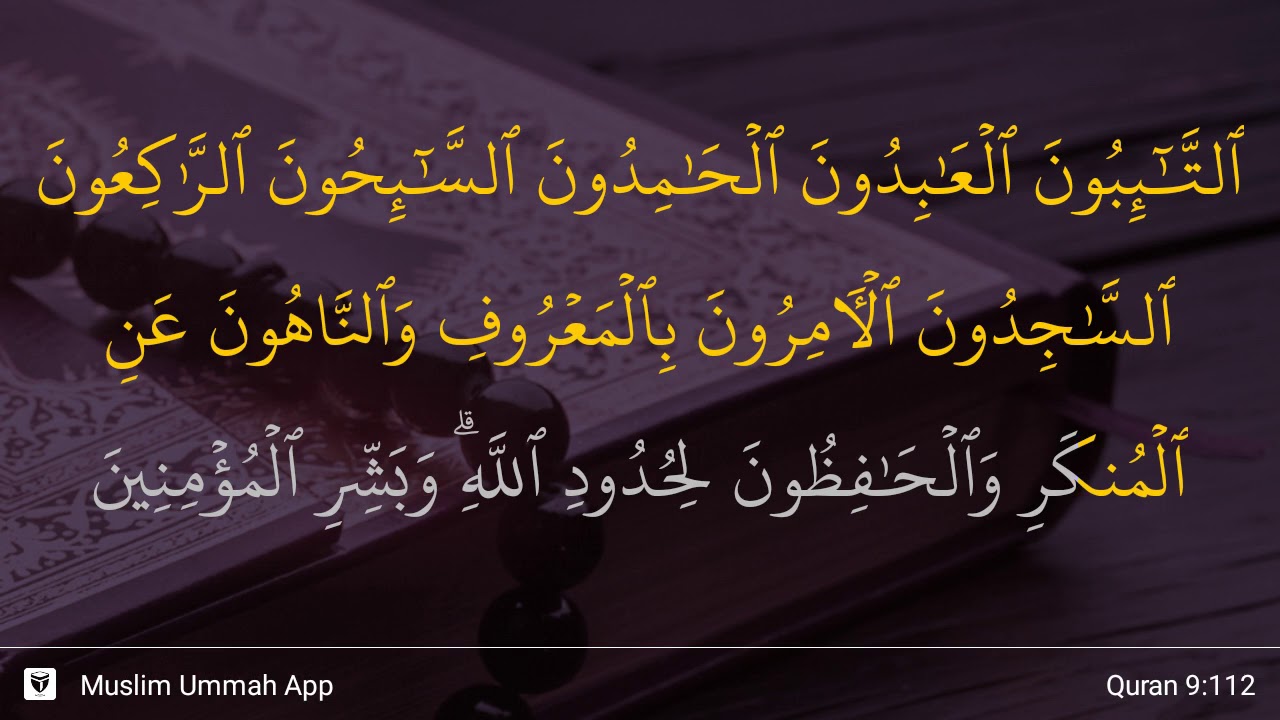 ٱلتَّـٰٓئِبُونَ ٱلْعَـٰبِدُونَ ٱلْحَـٰمِدُونَ ٱلسَّـٰٓئِحُونَ ٱلرَّٰكِعُونَ
ٱلسَّـٰجِدُونَ ٱلْـَٔامِرُونَ بِٱلْمَعْرُوفِ وَٱلنَّاهُونَ عَنِ
ٱلْمُنكَرِ وَٱلْحَـٰفِظُونَ لِحُدُودِ ٱللَّهِ ۗ وَبَشِّرِ ٱلْمُؤْمِنِينَ
Muslim Ummah App
Quran 9:112